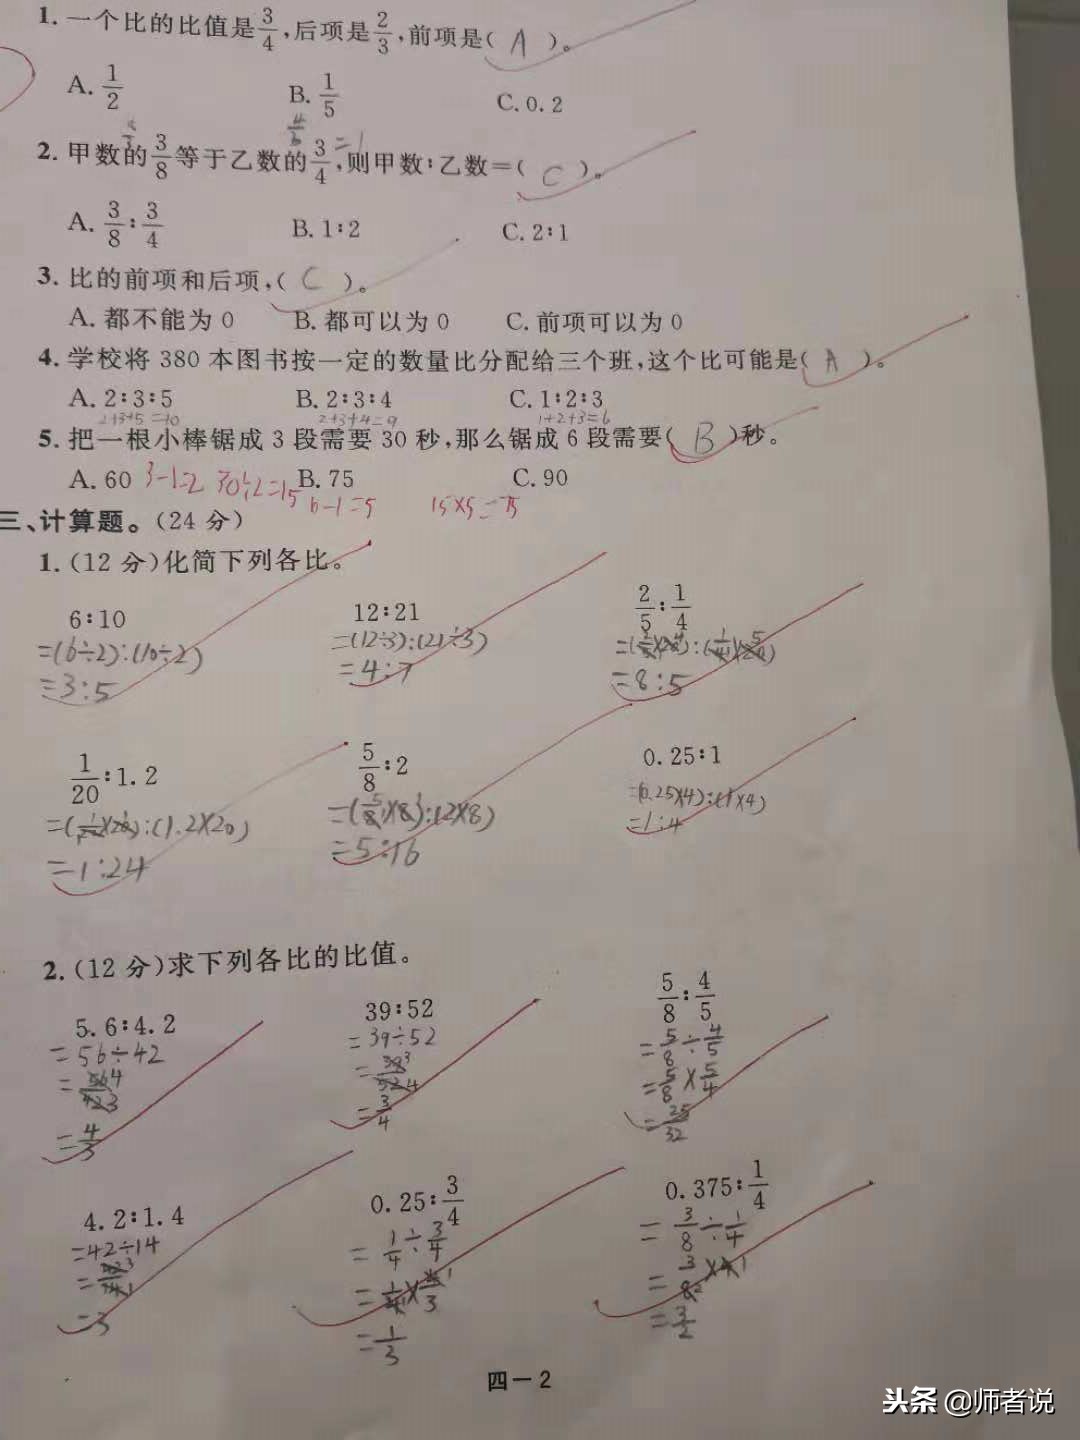 1. 一个比的比值是3/4,后项是2/3,前项是( A )。
A. 1/2 B. 1/5 C. 0.2
2. 甲数的3/8等于乙数的3/4,则甲数:乙数=( C )。
A. 3/8:3/4 B. 1:2 C. 2:1
3. 比的前项和后项,( C )。
A. 都不能为0 B. 都可以为0 C. 前项可以为0
4. 学校将380本图书按一定的数量比分配给三个班,这个比可能是( A )。
A. 2:3:5 B. 2:3:4 C. 1:2:3
2+3+5=10 2+3+4=9 1+2+3=6
5. 把一根小棒锯成3段需要30秒,那么锯成6段需要( B )秒。
A. 60 B. 75 C. 90
3-1=2 30÷2=15 6-1=5 15×5=75
三、计算题。(24分)
1. (12分)化简下列各比。
6:10 12:21 2/5:1/4
=(6÷2):(10÷2) =(12÷3):(21÷3) =(2/5×20):(1/4×20)
=3:5 =4:7 =8:5
1/20:1.2 5/8:2 0.25:1
=(1/20×20):(1.2×20) =(5/8×8):(2×8) =(0.25×4):(1×4)
=1:24 =5:16 =1:4
2. (12分)求下列各比的比值。
5.6:4.2 39:52 5/8:4/5
=56÷42 =39÷52 =5/8÷4/5
=56/42 =39/52 =5/8×5/4
=4/3 =3/4 =25/32
4.2:1.4 0.25:3/4 0.375:1/4
=42÷14 =1/4÷3/4 =3/8÷1/4
=42/14 =1/4×4/3 =3/8×4
=3 =1/3 =3/2
四—2
头条 @师者说